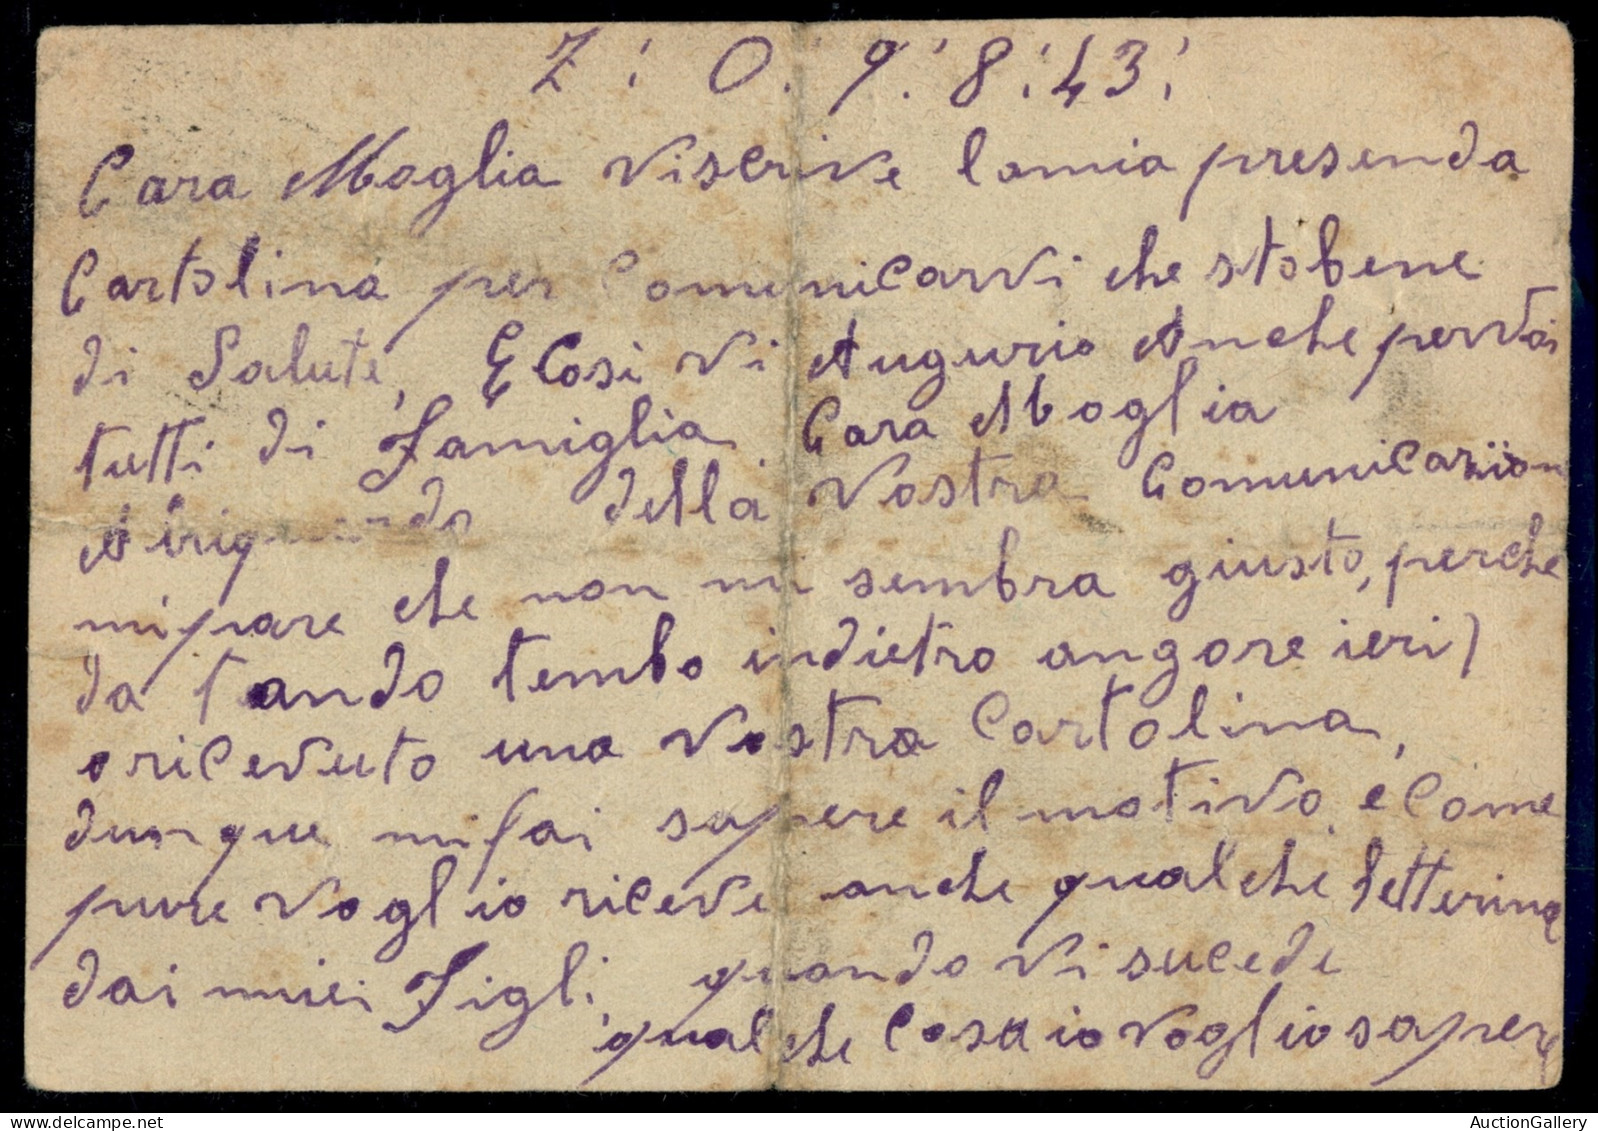 Z: O. 9:8:43:
Cara Moglia viscrive lamia presenda
Cartolina per Comunicarvi che stobene
di Salute, E Cosi vi Augurio Anche pervoi
tutti di Famiglia Cara Moglia
della Vostra Comunicaziion
mipare che non mi sembra giusto, perche
da tando tembo indietro angore ieri)
o ricevuto una vostra Cartolina,
dunque mifai sapere il motivo, e Come
pure voglio riceve anche qualche letterina
dai miei Figli, quando vi sucede
qualche Cosa io voglio sapere
AuctionGallery